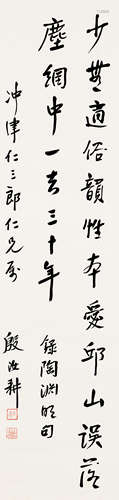 少無適俗韻性本愛邱山误落
塵網中一去三十年
錄陶淵明句
冲津仁三郎仁兄属
殷汝耕